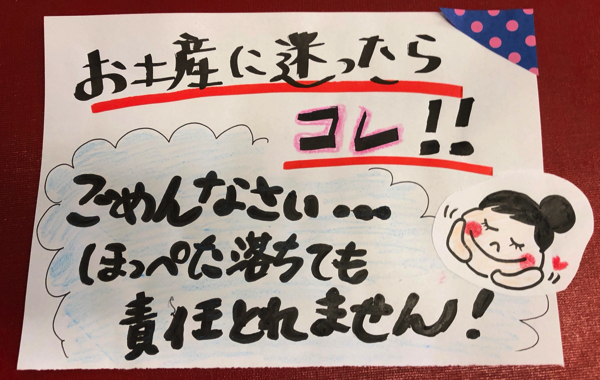 お土産に迷ったら
コレ!!
ごめんなさい...
ほっぺた落ちても
責任とれません!